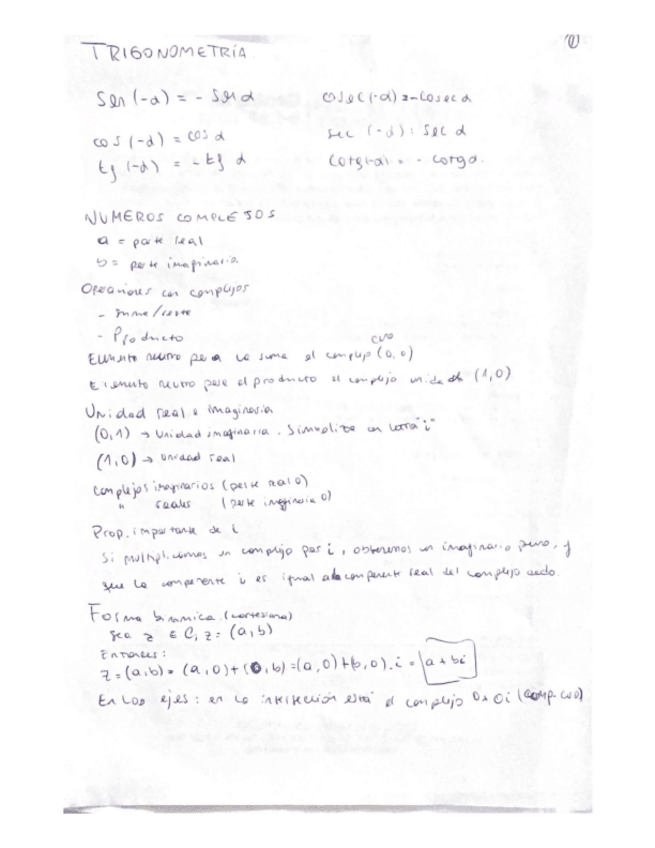 TRIGONOMETRÍA
1
Sen (-α) = - Sen α
cosec (-α) = - cosec α
cos (-α) = cos α
sec (-α) = sec α
tg (-α) = - tg α
cotg(-α) = - cotg α.
NUMEROS COMPLEJOS
a = parte real
b = parte imaginaria
Operaciones con complejos
- suma/resta
- Producto
Elemento neutro para la suma el complejo cero (0,0)
Elemento neutro para el producto el complejo unidad (1,0)
Unidad real e imaginaria
(0,1) → Unidad imaginaria. Simboliza con letra "i"
(1,0) → unidad real
Complejos imaginarios (parte real 0)
" reales (parte imaginaria 0)
Prop. importante de i
Si multiplicamos un complejo por i, obtenemos un imaginario puro, y
que la componente i es igual a la componente real del complejo dado.
Forma binmica (cartesiana)
Sea z ∈ C, z = (a,b)
Entonces:
z = (a,b) = (a,0)+(0,b) = (a,0)+(b,0).i = a + bi
En los ejes: en la intersección está el complejo 0+0i (comp. cero)